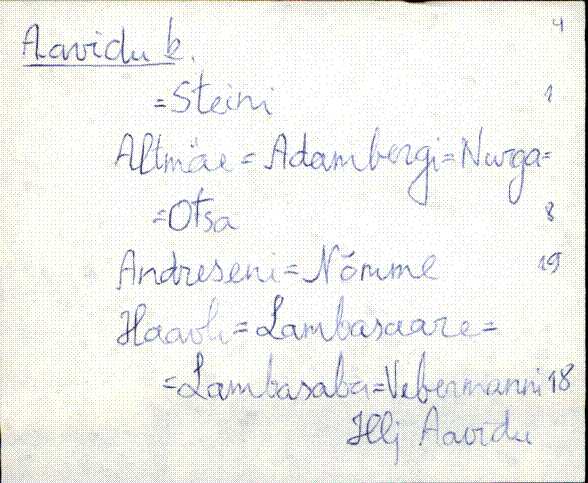 4
Aavidu k.
=Steini 1
Altmäe = Adambergi = Nurga =
=Otsa 8
Andreseni = Nõmme 19
Haavli = Lambasaare =
=Lambasaba = Vebermanni 18
Hlj Aavidu